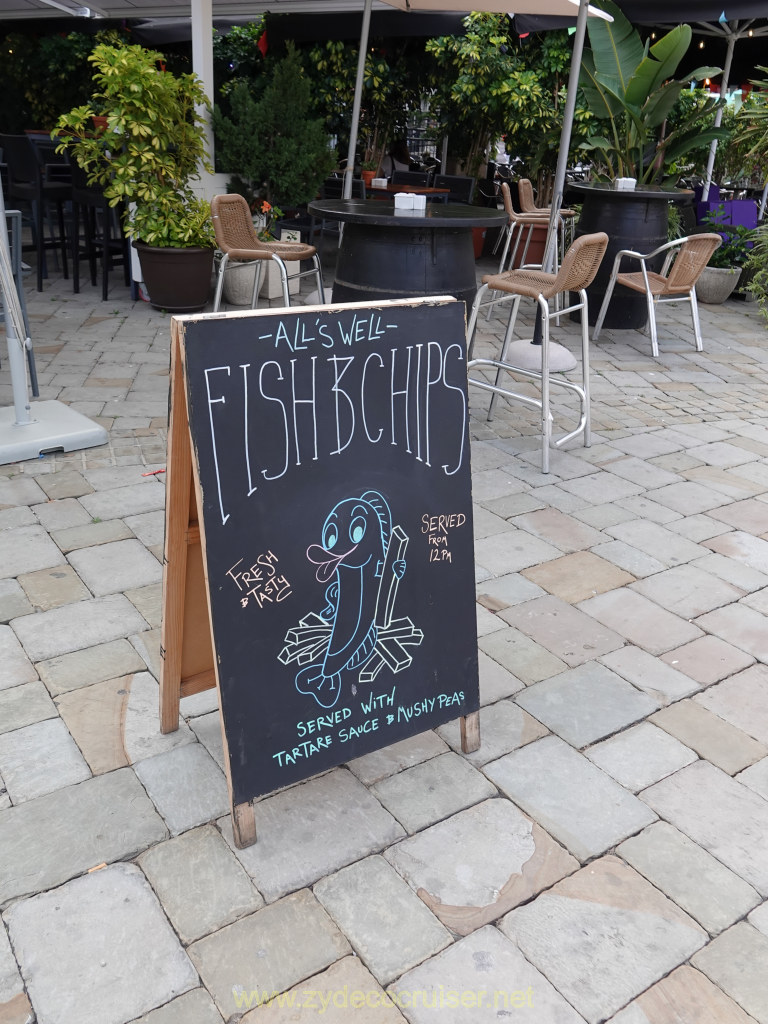 -ALL'S WELL-
FISH & CHIPS
SERVED
FROM
12PM
FRESH
& TASTY
SERVED WITH
TARTARE SAUCE & MUSHY PEAS
www.zydecocruiser.net